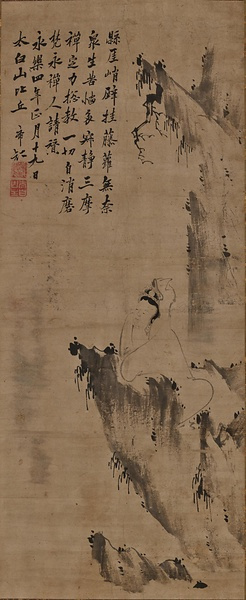 縣厓峭壁挂藤蘿無奈
衆生苦惱多寂靜三摩
禪定力総教一切自消磨
梵永禪人請賛
永樂四年正月十九日
太白山比丘